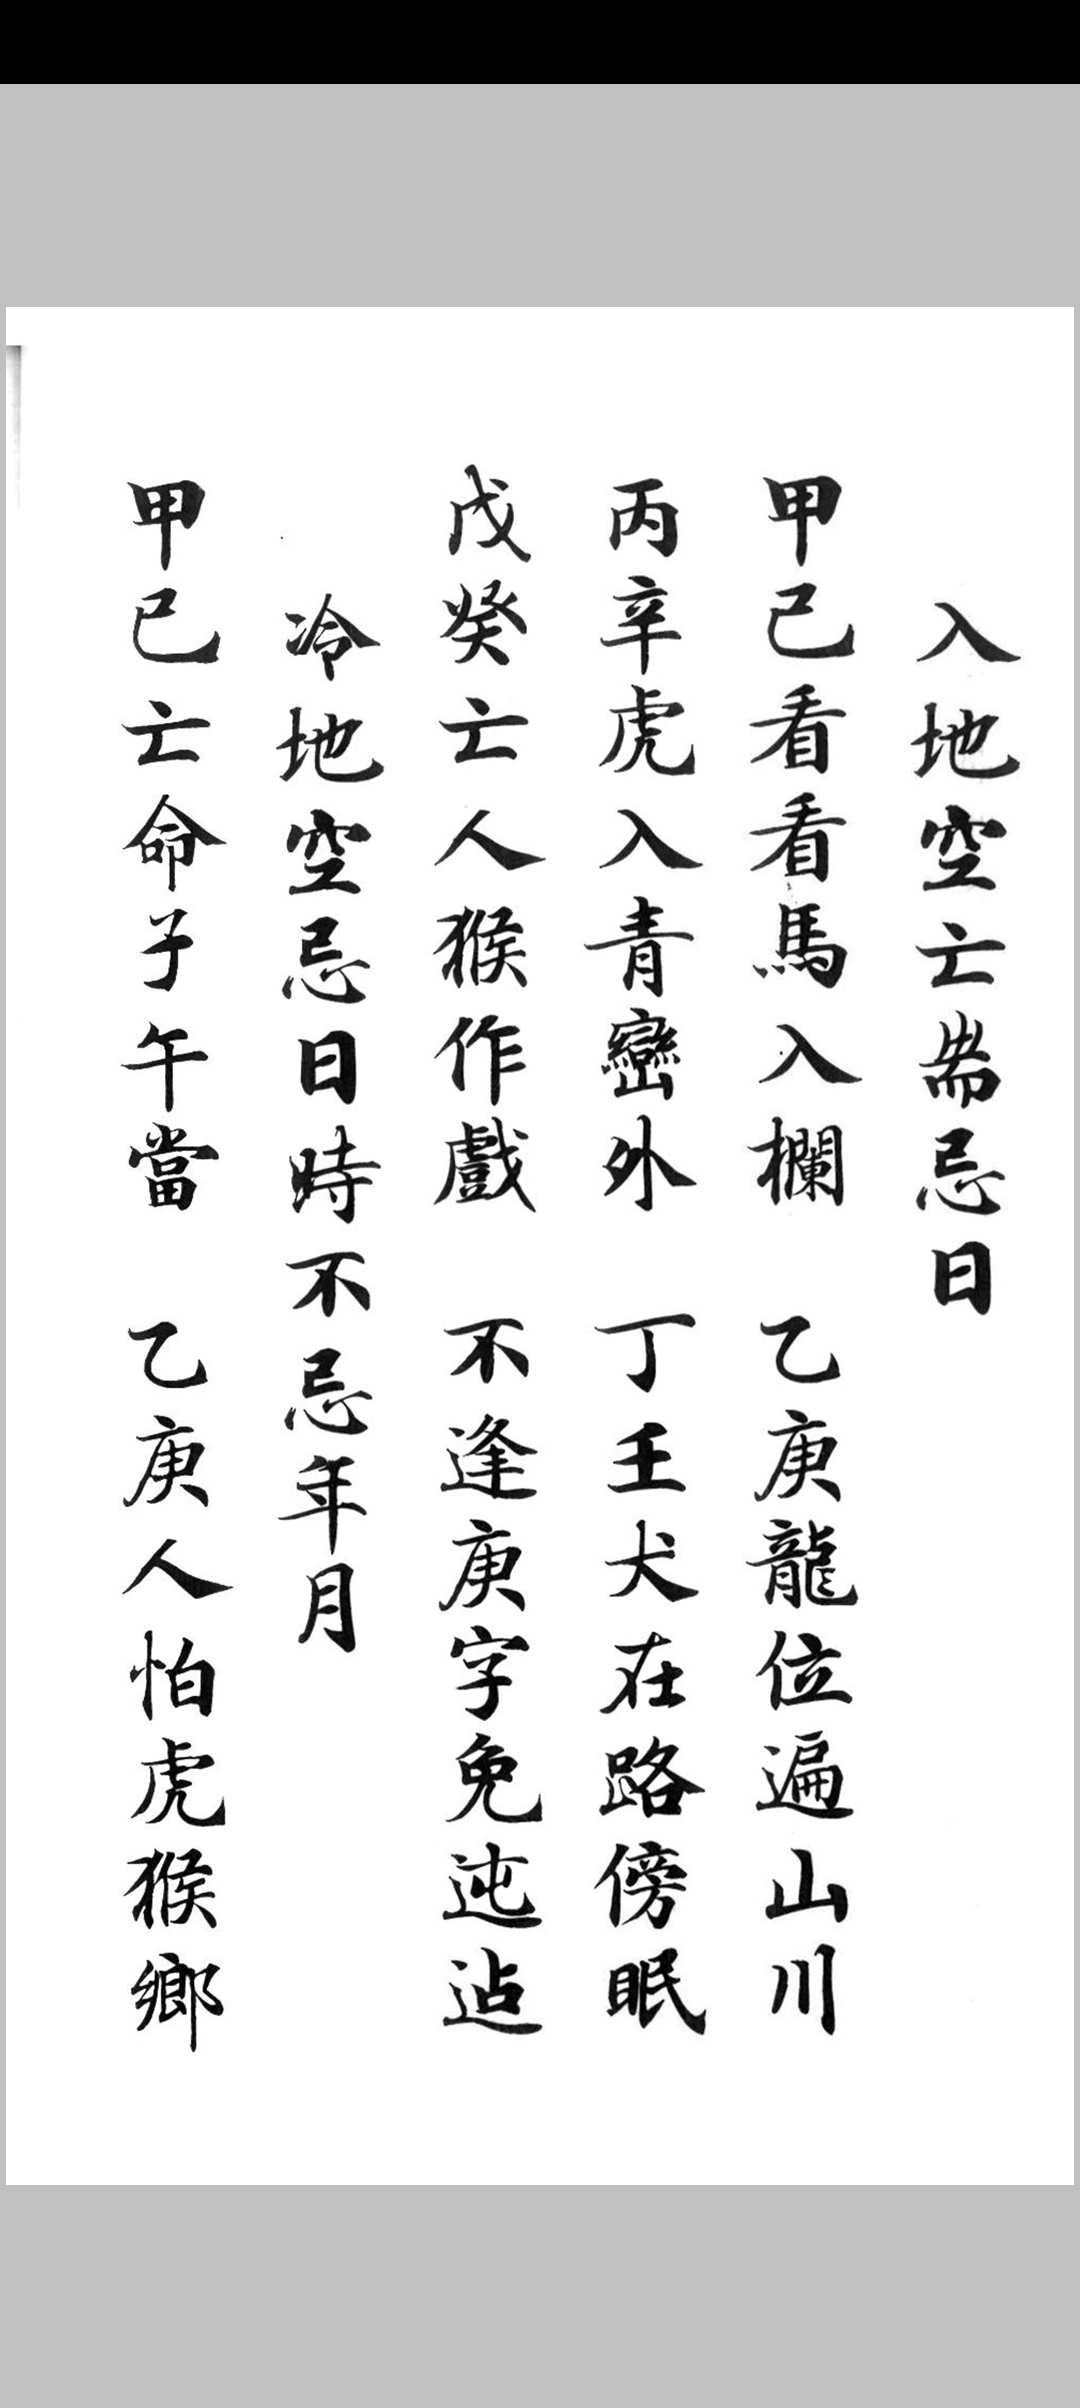 入地空亡耑忌日
甲己看看馬入欄　乙庚龍位遍山川
丙辛虎入青巒外　丁壬犬在路傍眠
戊癸亡人猴作戲　不逢庚字免迍迍
冷地空忌日時不忌年月
甲已亡命子午當　乙庚人怕虎猴鄉